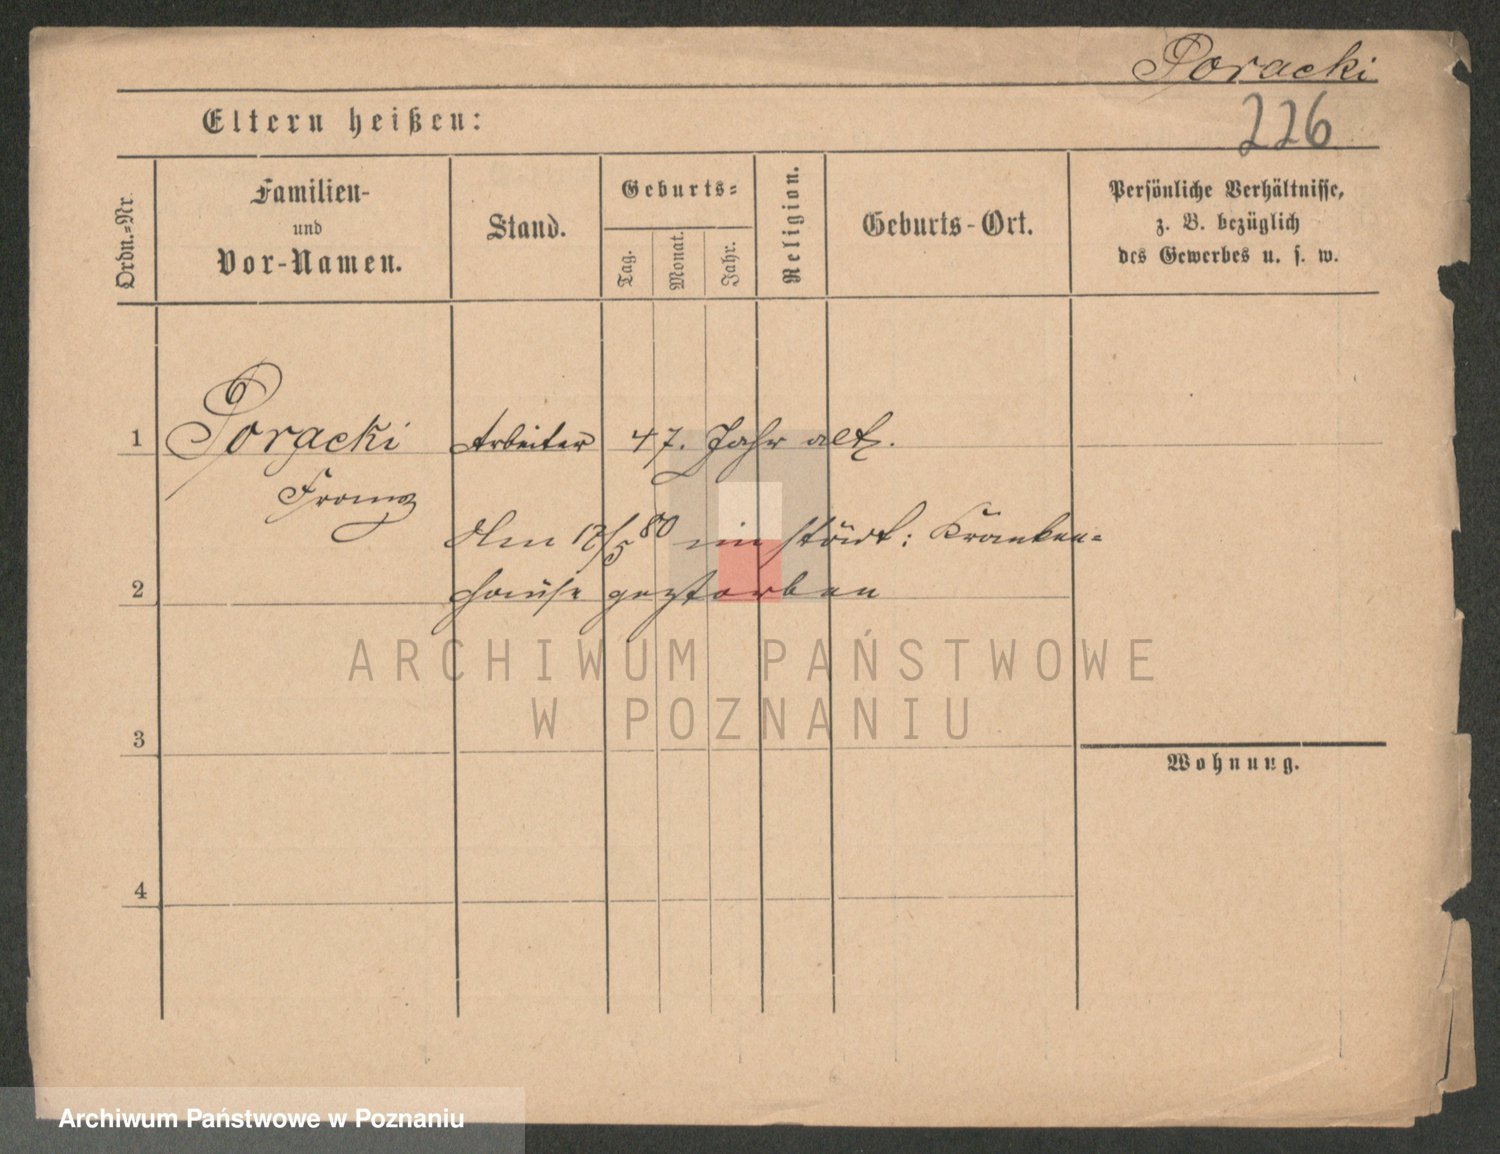 Poracki
226
Eltern heißen:
Ordn.-Nr.
Familien-
und
Vor-Namen.
Stand.
Geburts-
Tag.
Monat.
Jahr.
Religion.
Geburts-Ort.
Persönliche Verhältnisse,
z. B. bezüglich
des Gewerbes u. s. w.
1 Poracki Arbeiter 47. Jahr alt.
Franz
Am /5 80 im städt: Kranken-
2 hause gestorben
ARCHIWUM PAŃSTWOWE
W POZNANIU
3
Wohnung.
4
Archiwum Państwowe w Poznaniu